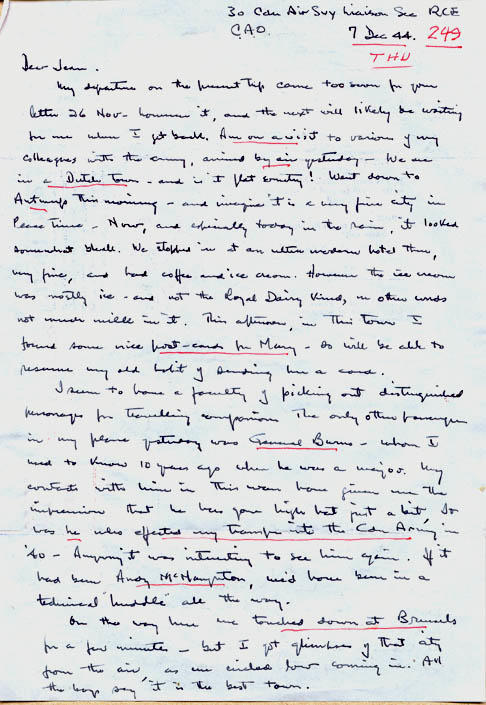 30 Cdn Air Svy Liaison Sec RCE
C.A.O. 7 Dec 44. 249
THU
Dear Jean.
My departure on the present trip came too soon for your
letter 26 Nov - however it, and the next will likely be waiting
for me when I get back. Am on a visit to various of my
colleagues with the army, arrived by air yesterday - We are
in a Dutch town - and is it flat country! Went down to
Antwerp this morning - and imagine it is a very fine city in
Peace time - Now, and especially today in the rain, it looked
somewhat bleak. We stopped in at an ultra modern hotel there,
very fine, and had coffee and ice cream. However the ice cream
was mostly ice - and not the Royal Dairy kind, in other words
not much milk in it. This afternoon, in this town I
found some nice post-cards for Mary - so will be able to
resume my old habit of sending her a card.
I seem to have a faculty of picking out distinguished
personages for travelling companions The only other passenger
in my plane yesterday was General Burns - whom I
used to know 10 years ago when he was a major. My
contacts with him in this war have given me the
impression that he has gone high hat just a bit, It
was he who effected my transfer into the Cdn Army in
'40 - Anyway it was interesting to see him again. If it
had been Andy McNaughton, we'd have been in a
technical "huddle" all the way.
On the way here we touched down at Brussels
for a few minutes - but I got glimpses of that city
from the air, as we circled low coming in. All
the boys say it is the best town.